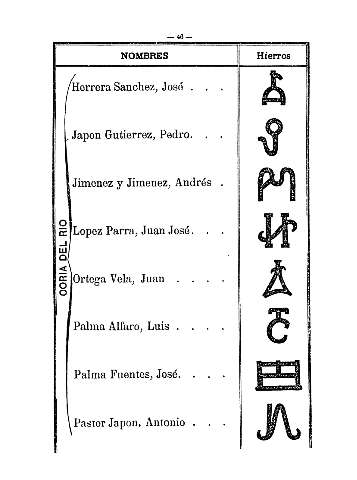 — 46 —
NOMBRES Hierros
CORIA DEL RIO
Herrera Sanchez, José . . .
Japon Gutierrez, Pedro. . .
Jimenez y Jimenez, Andrés .
Lopez Parra, Juan José. . .
Ortega Vela, Juan . . . .
Palma Alfaro, Luis . . . .
Palma Fuentes, José. . . .
Pastor Japon, Antonio . . .